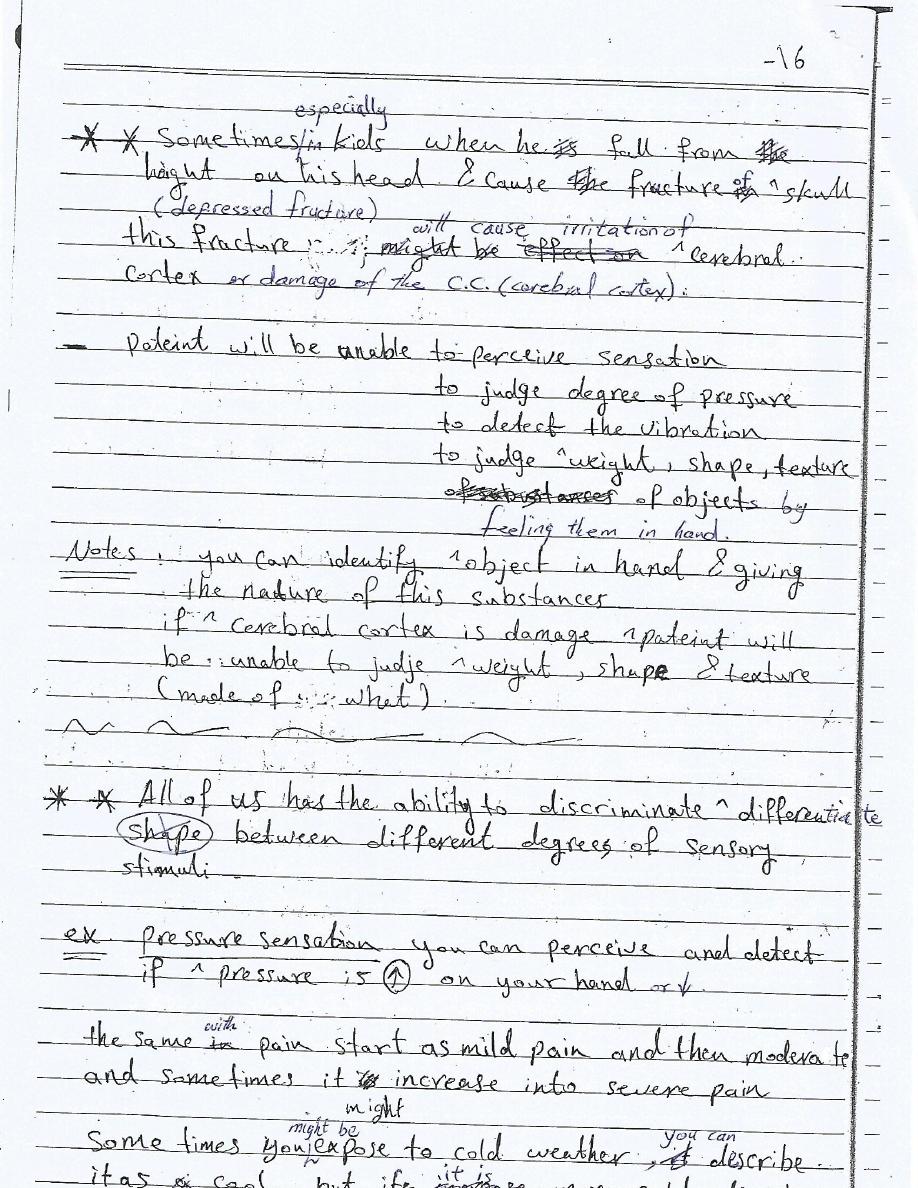 -16
especially
* * Sometimes/in kids when he is fall from the
hight on his head & cause the fracture of ^ skull
(depressed fructure)
will cause irritation of
this fracture might be effect on ^ cerebral
cortex or damage of the C.C. (cerebral cortex).
- pateint will be unable to perceive sensation
to judge degree of pressure
to detect the vibration
to judge ^ weight, shape, texture
of substances of objects by
feeling them in hand.
Notes: you can identify ^ object in hand & giving
the nature of this substances
if ^ cerebral cortex is damage ^ pateint will
be unable to judje ^ weight, shape & texture
(made of what).
* * All of us has the ability to discriminate ^ differentiate
shape between different degrees of sensory
stimuli
ex pressure sensation you can perceive and detect
if ^ pressure is ↑ on your hand or ↓
with
the same in pain start as mild pain and then moderate
and sometimes it is increase into severe pain
might
might be you can
Some times you expose to cold weather, it describe
it is
it as cool but if